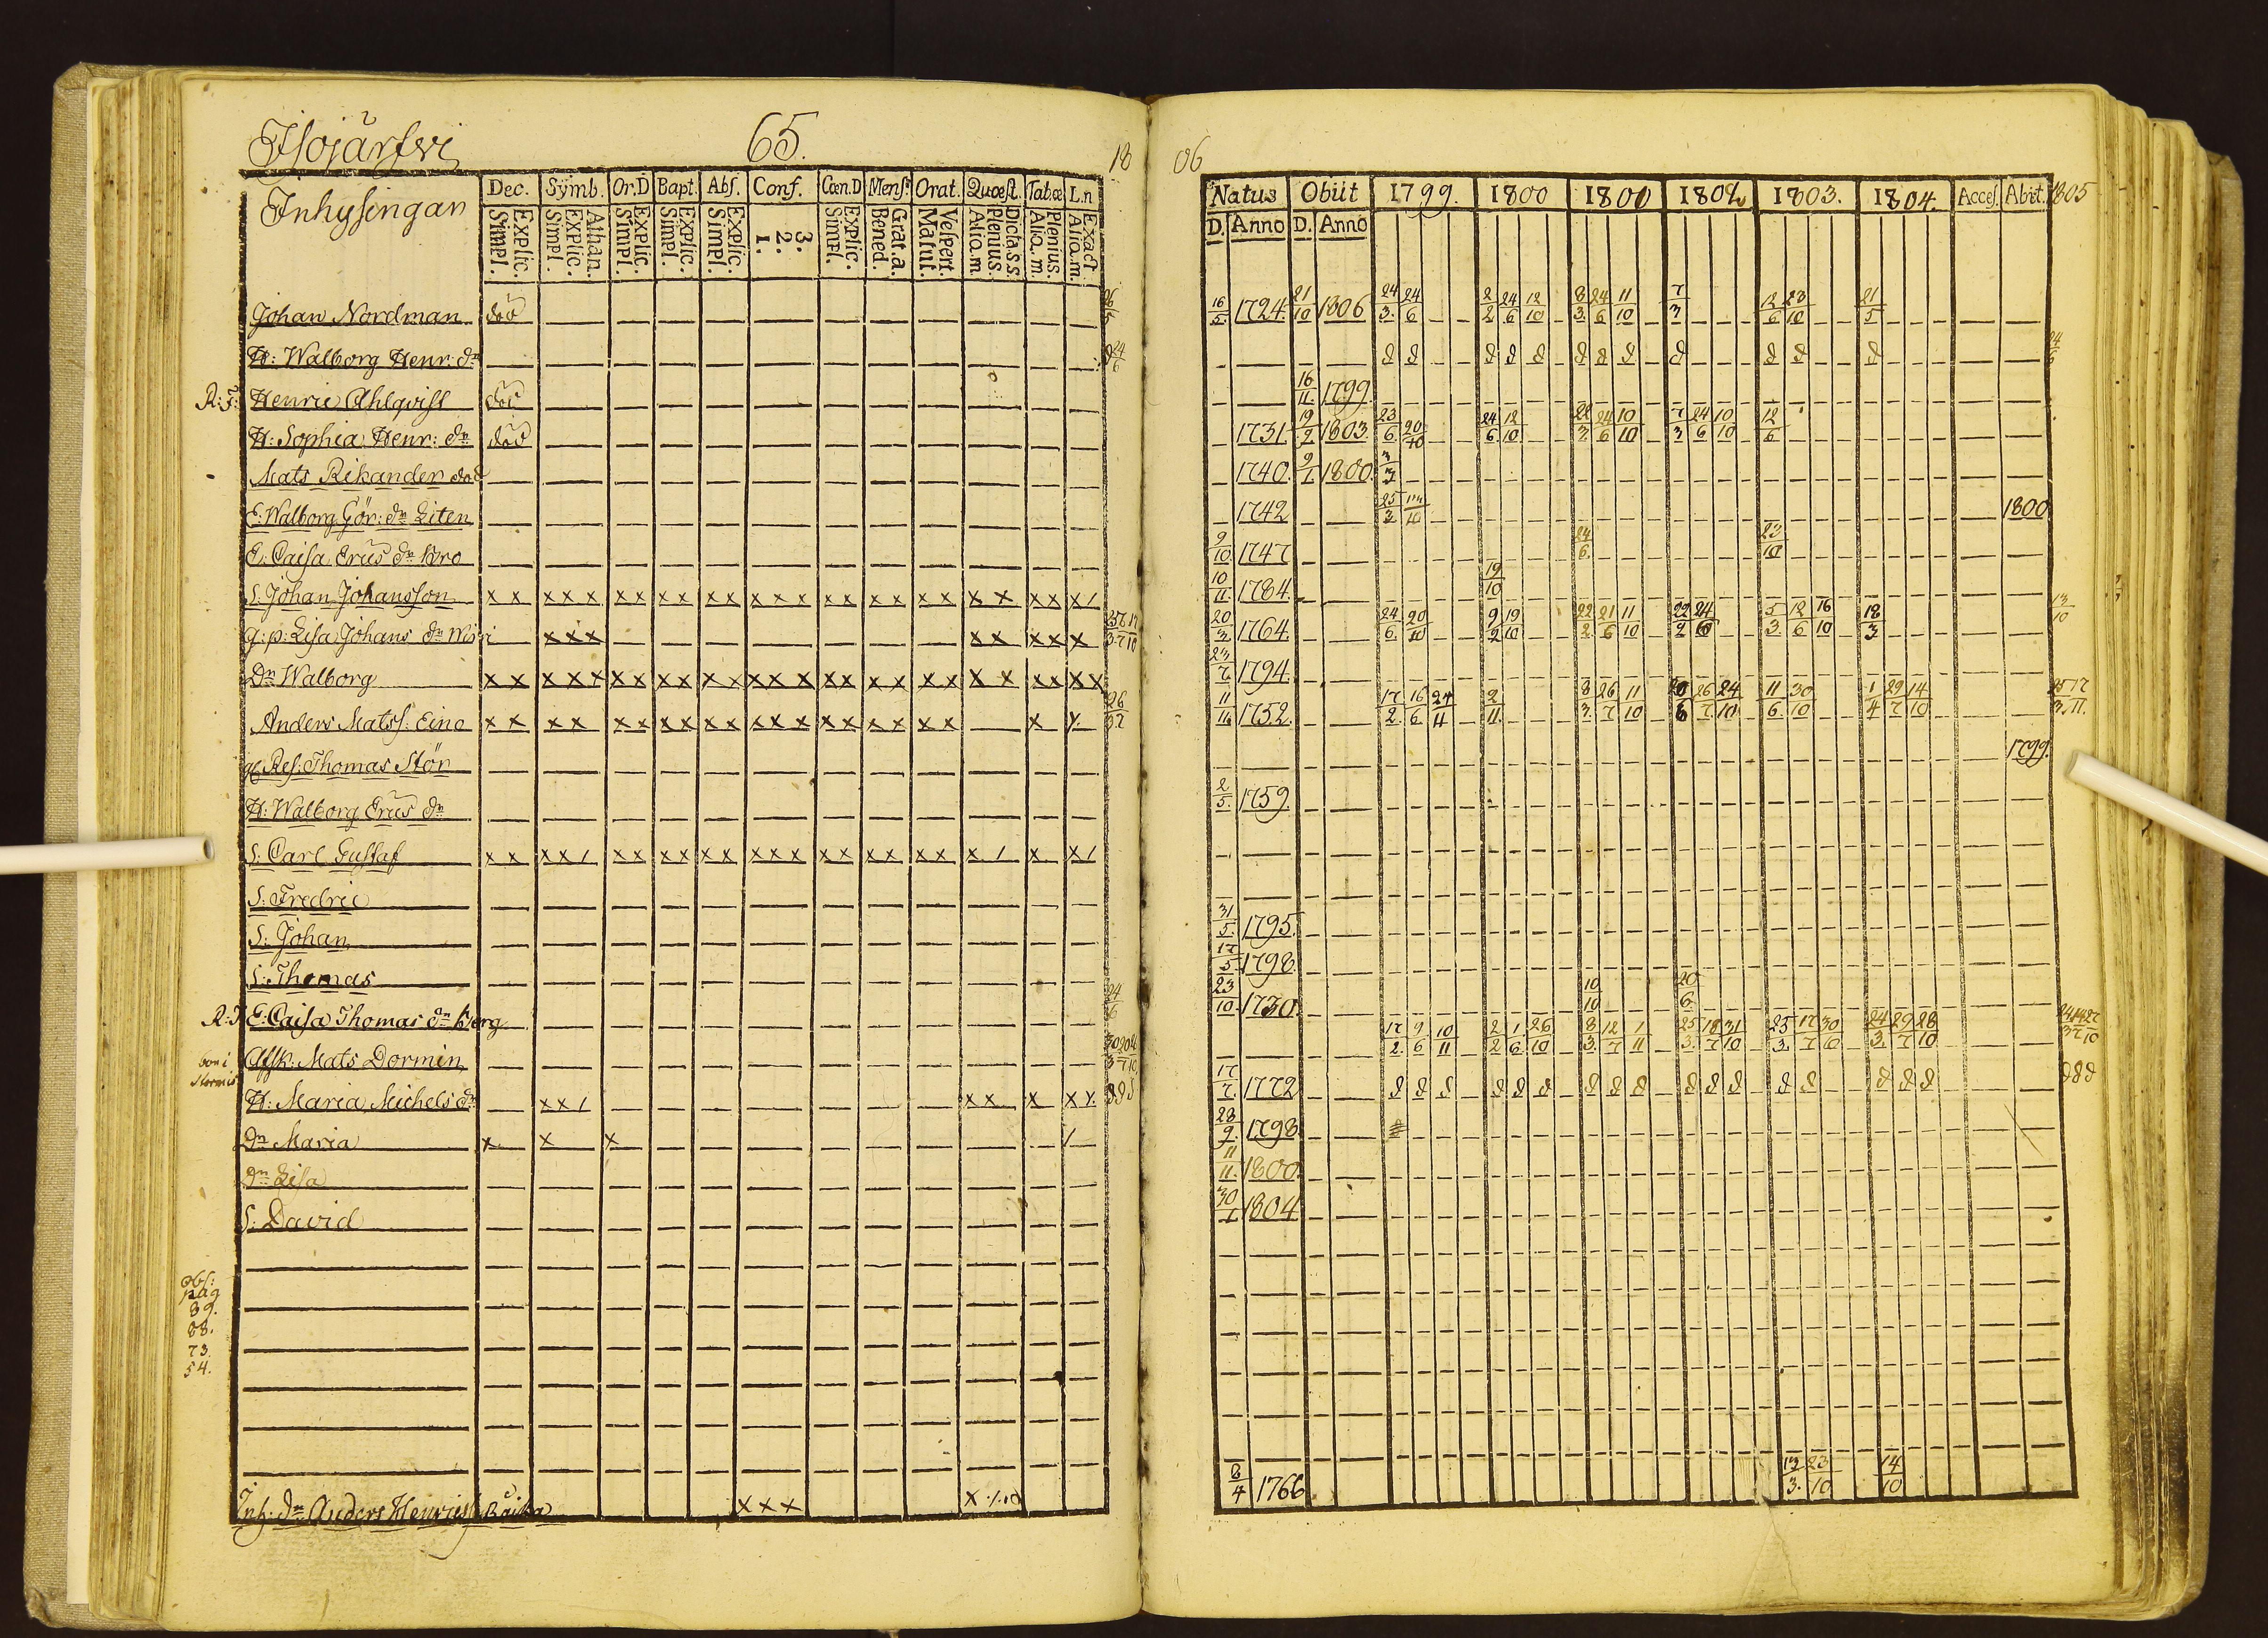 Isojärfvi 65. 18 06
Inhysingan
Dec. Symb. Or.D Bapt. Abs. Conf. Cœn.D Mens. Orat. Quœst. Tab.œ L.n
Explic. Simpl. Athan. Explic. Simpl. Explic. Simpl. Explic. Simpl. Explic. Simpl. 3. 2. 1. Explic. Simpl. Grat.a. Bened. Vespert. Matut. Dicta s.s. Plenius. Aliq.m. Plenius. Aliq.m. Exact Aliq.m.
Natus Obiit 1799. 1800 1800 1802 1803. 1804. Acces. Abiit. 1805
D. Anno D. Anno
Johan Nordman död 16/5 1724. 21/10 1806 24/3 24/6 2/2 24/6 12/10 8/3 24/6 11/10 7/3 12/6 23/10 21/5
H: Walborg Henr: dr d d d d d d d d d d d d 24/6
Henric Ahlqvist död 16/11 1799
H: Sophia Henr: dr död 1731. 19/2 1803. 23/6 20/10 24/6 12/10 22/3 24/6 10/10 7/3 24/6 10/10 12/6
Mats Rikander död 1740. 9/1 1800. 3/3
E: Walborg Gör: dr Liten 1742 25/3 1800
E: Caisa Erics dr Bro 9/10 1747 24/6 23/10
S: Johan Johansson x x x x x x x x x x x x x x x x x x x x x x x x x / 10/11 1784. 19/10
Lisa Johans dr x x x x x x x x 20/3 1764. 24/6 20/10 9/2 19/10 22/2 21/6 11/10 22/2 24/6 5/3 12/6 16/10 18/3 13/10
Dr Walborg x x x x x x x x x x x x x x x x x x x x x x x x x x 23/7 1794.
Anders Matss: Eino x x x x x x x x x x x x x x x x x x x x x 11/11 1752. 17/2 16/6 24/11 2/11 8/3 26/7 11/10 20/6 26/7 24/10 11/6 30/10 1/4 29/7 14/10 25/3 17/11
Res: Thomas Stör 1799.
H: Walborg Erics dr 2/5 1759.
S: Carl Gustaf x x x x / x x x x x x x x x x x x x x x x / x x /
S: Fredric
S: Johan 31/5 1795.
S: Thomas 17/5 1798
E: Caisa Thomas dr Berg 23/10 1730. 10/10 20/6
Afsk: Mats Dormin 17/2 9/6 10/11 2/2 1/6 26/10 8/3 12/7 1/11 25/3 18/7 31/10 25/3 17/7 30/10 24/3 29/7 28/10
H: Maria Michels dr x x / x x x x 17/7 1772 d d d d d d d d d d d d d d d d d d d d
Dr Maria x x x / 28/9 1798
Dr Lisa 11/11 1800.
S: David 30/1 1804
obs:
pag
89.
88.
73.
54.
Inh: dr Anders Henriss: x x x x 8/4 1766 13/3 23/10 14/10